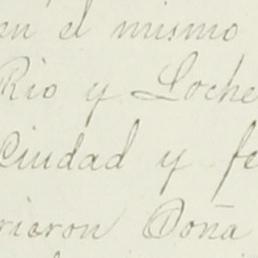 en el mismo
Rio y Loche
Ciudad y fe
rieron Doña